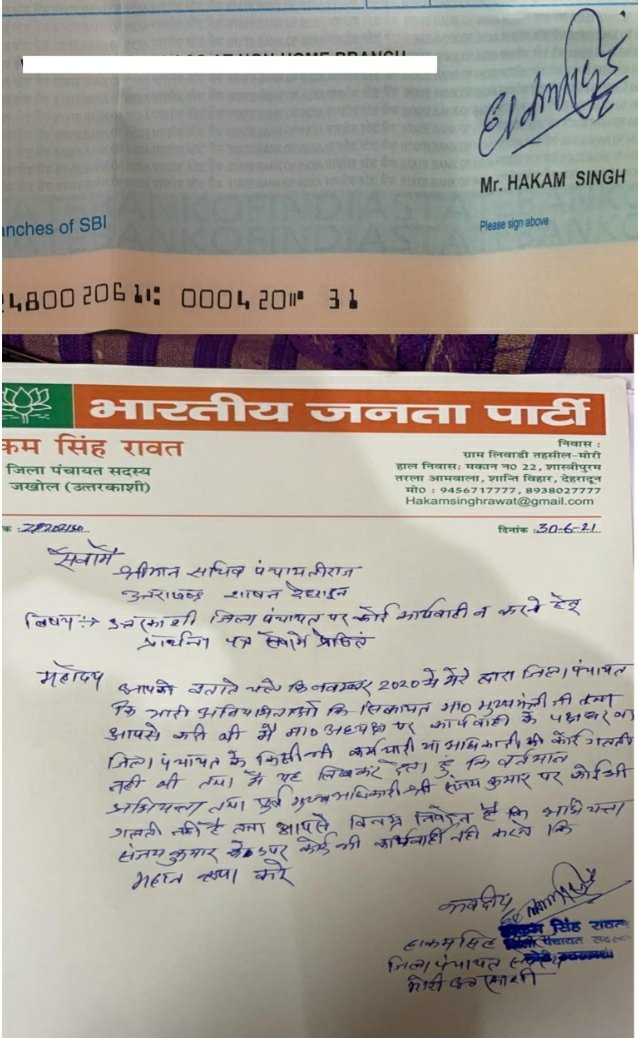 Mr. HAKAM SINGH
anches of SBI
Please sign above
4800 2061 000420 31
भारतीय जनता पार्टी
कम सिंह रावत
जिला पंचायत सदस्य
जखोल (उत्तरकाशी)
निवास :
ग्राम लिवाडी तहसील-मोरी
हाल निवास: मकान न0 22, शास्त्रीपुरम
तरला आमवाला, शान्ति विहार, देहरादून
मो0 : 9456717777, 8938027777
Hakamsinghrawat@gmail.com
दिनांक : 30-6-21
सेवामें
श्रीमान सचिव पंचायतीराज
उत्तराखण्ड शासन देहरादून
विषय :→ उत्तरकाशी जिला पंचायत पर कोई कार्यवाही न करने हेतु
प्रार्थना पत्र सेवामे प्रेषित
महोदय
आपको बताते चले कि नवम्बर 2020 मे मेरे द्वारा जिला पंचायत
कि भारी अनियमितताओ कि शिकायत मा0 मुख्यमंत्री जी तथा
आपसे की थी मै मा0 अध्यक्ष पर कार्यवाही के पक्षधर था
जिला पंचायत के किसी भी कर्मचारी या अधिकारी की कोई गलती
नही थी तथा मै यह लिखकर देता हु कि वर्तमान
अभियन्ता तथा पूर्व मुख्य अधिकारी श्री संजय कुमार पर कोई भी
गलती नही है तथा आपसे विनम्र निवेदन है कि अभियन्ता
संजय कुमार के उपर कोई भी कार्यवाही नही करने कि
महान कृपा करे
भवदीय
हाकम सिंह रावत
जिला पंचायत सदस्य
हाकम सिंह
जिला पंचायत सदस्य
मोरी उत्तरकाशी